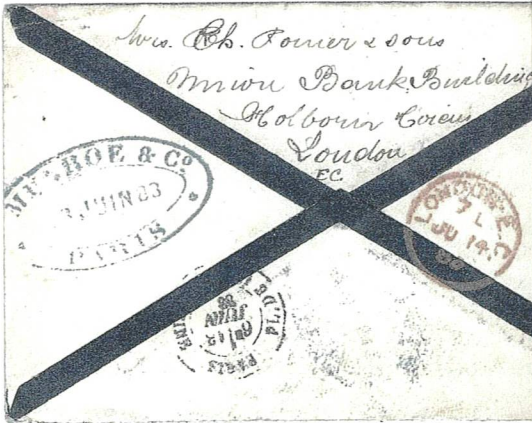 Ch. Fourier & sons
Union Bank Building
Holborn Circus
London
E.C.
MUNROE & Co
JUIN 83
PARIS
LONDON E.C
7 L
JU 14
PARIS
JUIN
PL. DE